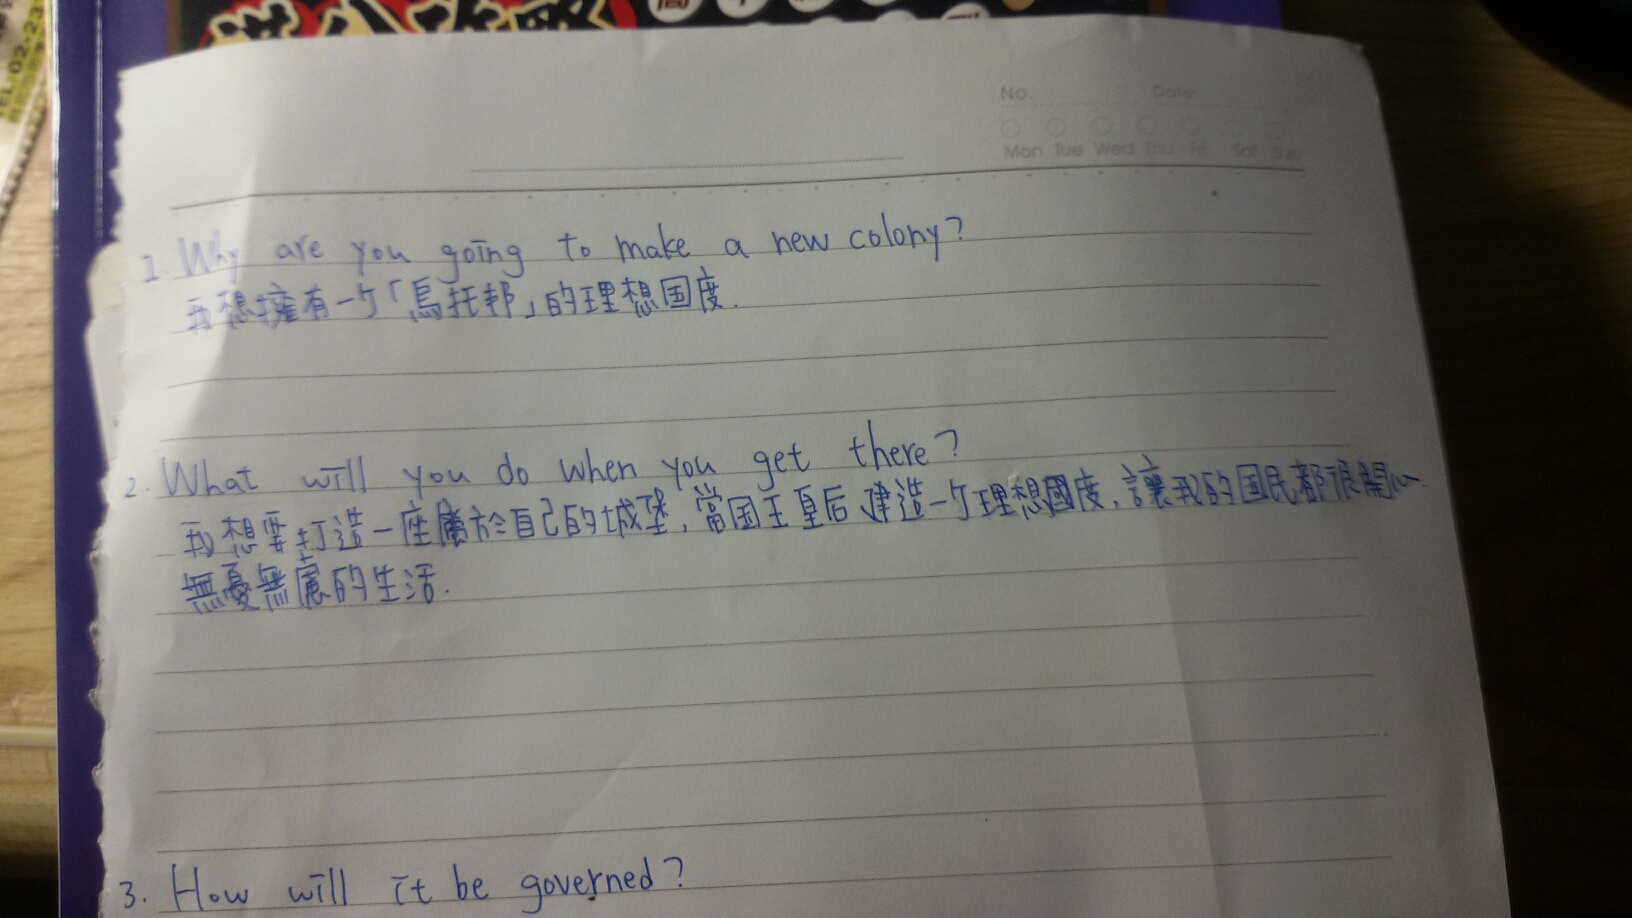 No. Date
Mon Tue Wed Thu Fri Sat Sun
1. Why are you going to make a new colony?
我想擁有一个「烏托邦」的理想国度.
2. What will you do when you get there?
我想要打造一座屬於自己的城堡,當国王皇后建造一个理想國度,讓我的国民都很開心
無憂無慮的生活.
3. How will it be governed?